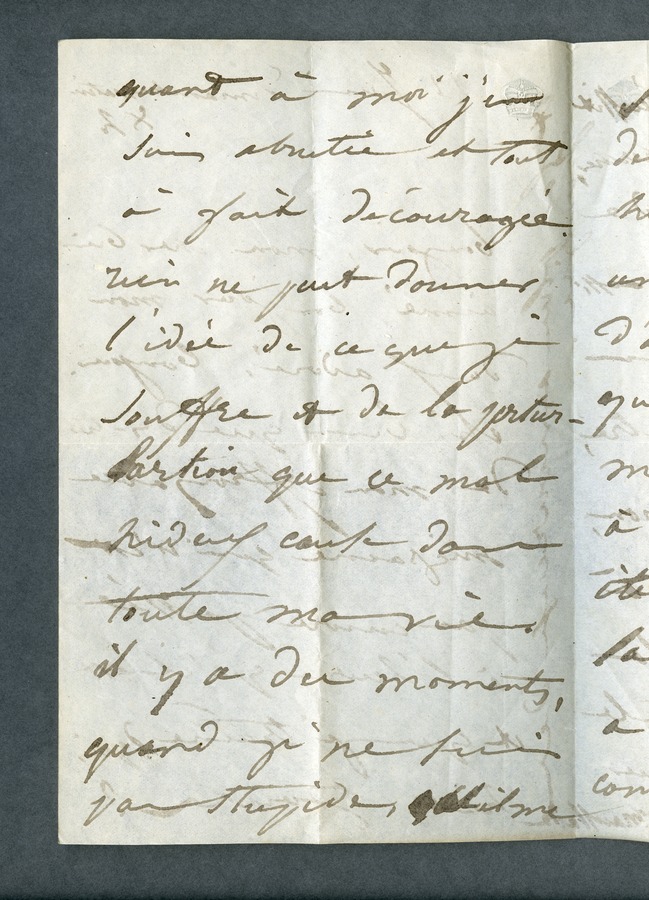 quant à moi j'en
suis abrutie et tout
à fait découragée.
rien ne peut donner
l'idée de ce que je
souffre et de la pertur-
bartion que ce mal
hideux cause dans
toute ma vie.
il y a des moments,
quand je ne suis
pas stupide, qu'il me